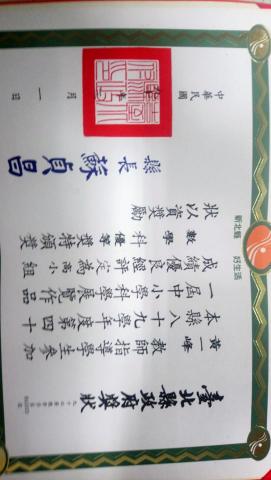 臺北縣政府獎狀
黃一峰教師指導學生參加
本縣八十九學年度第四十
一屆中小學科學展覽作品
成績優良經評定為高小組
數學科優等獎特頒獎
狀以資獎勵
縣長蘇貞昌
中華民國
年
月
一日
新北縣 好生活